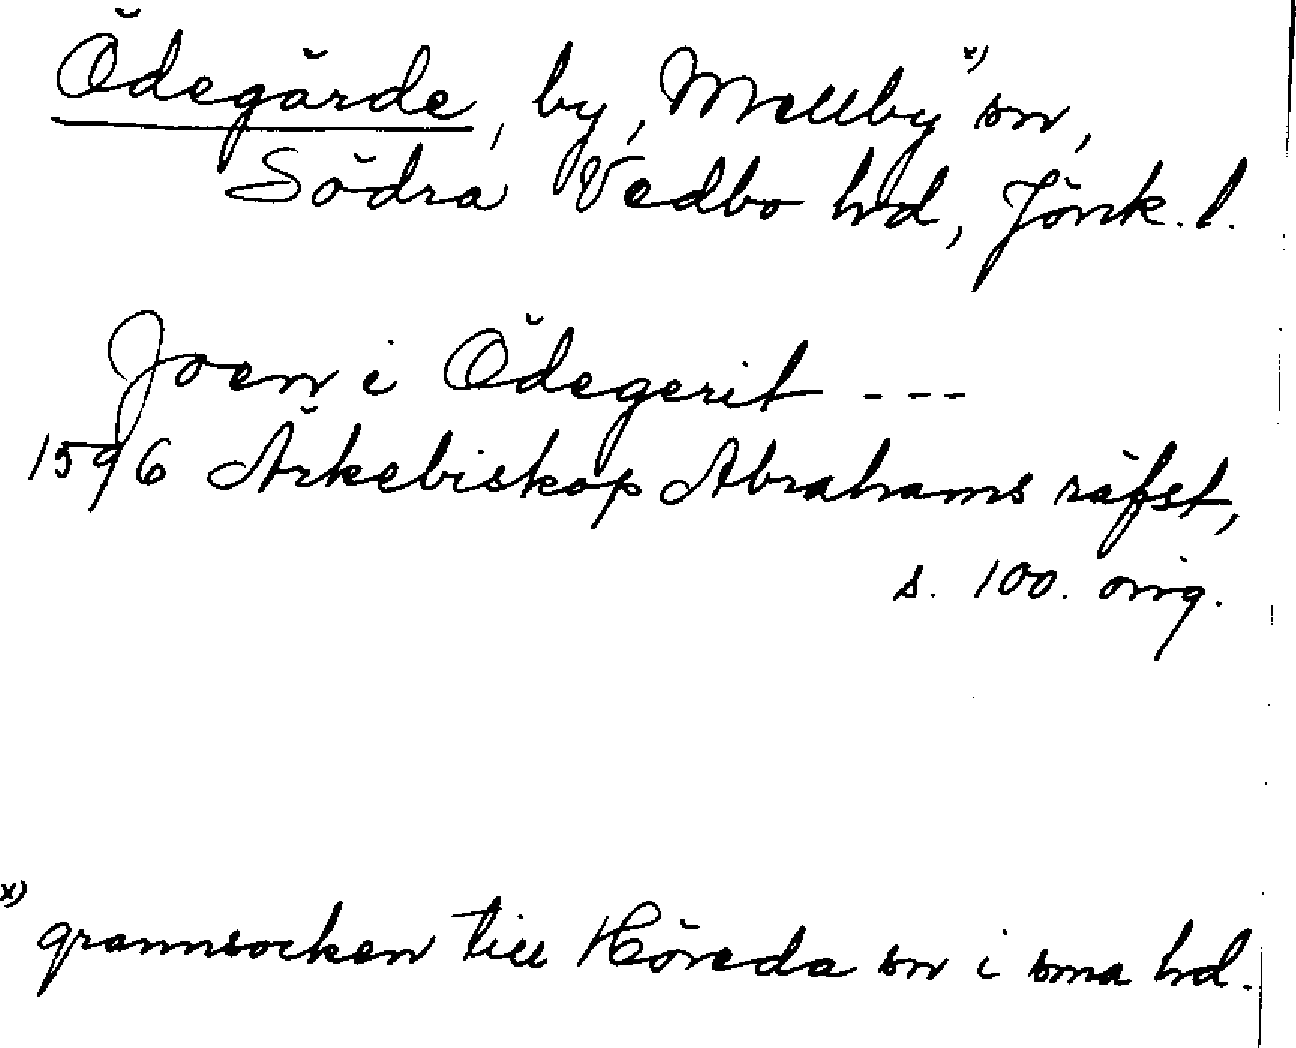 Ödegärde, by, Mellby x) sn,
Södra Vedbo hd, Jönk. l.
Joen i Ödegerit ---
1596 Ärkebiskop Abrahams räfst,
s. 100. orig.
x) grannsocken till Höreda sn i sma hd.